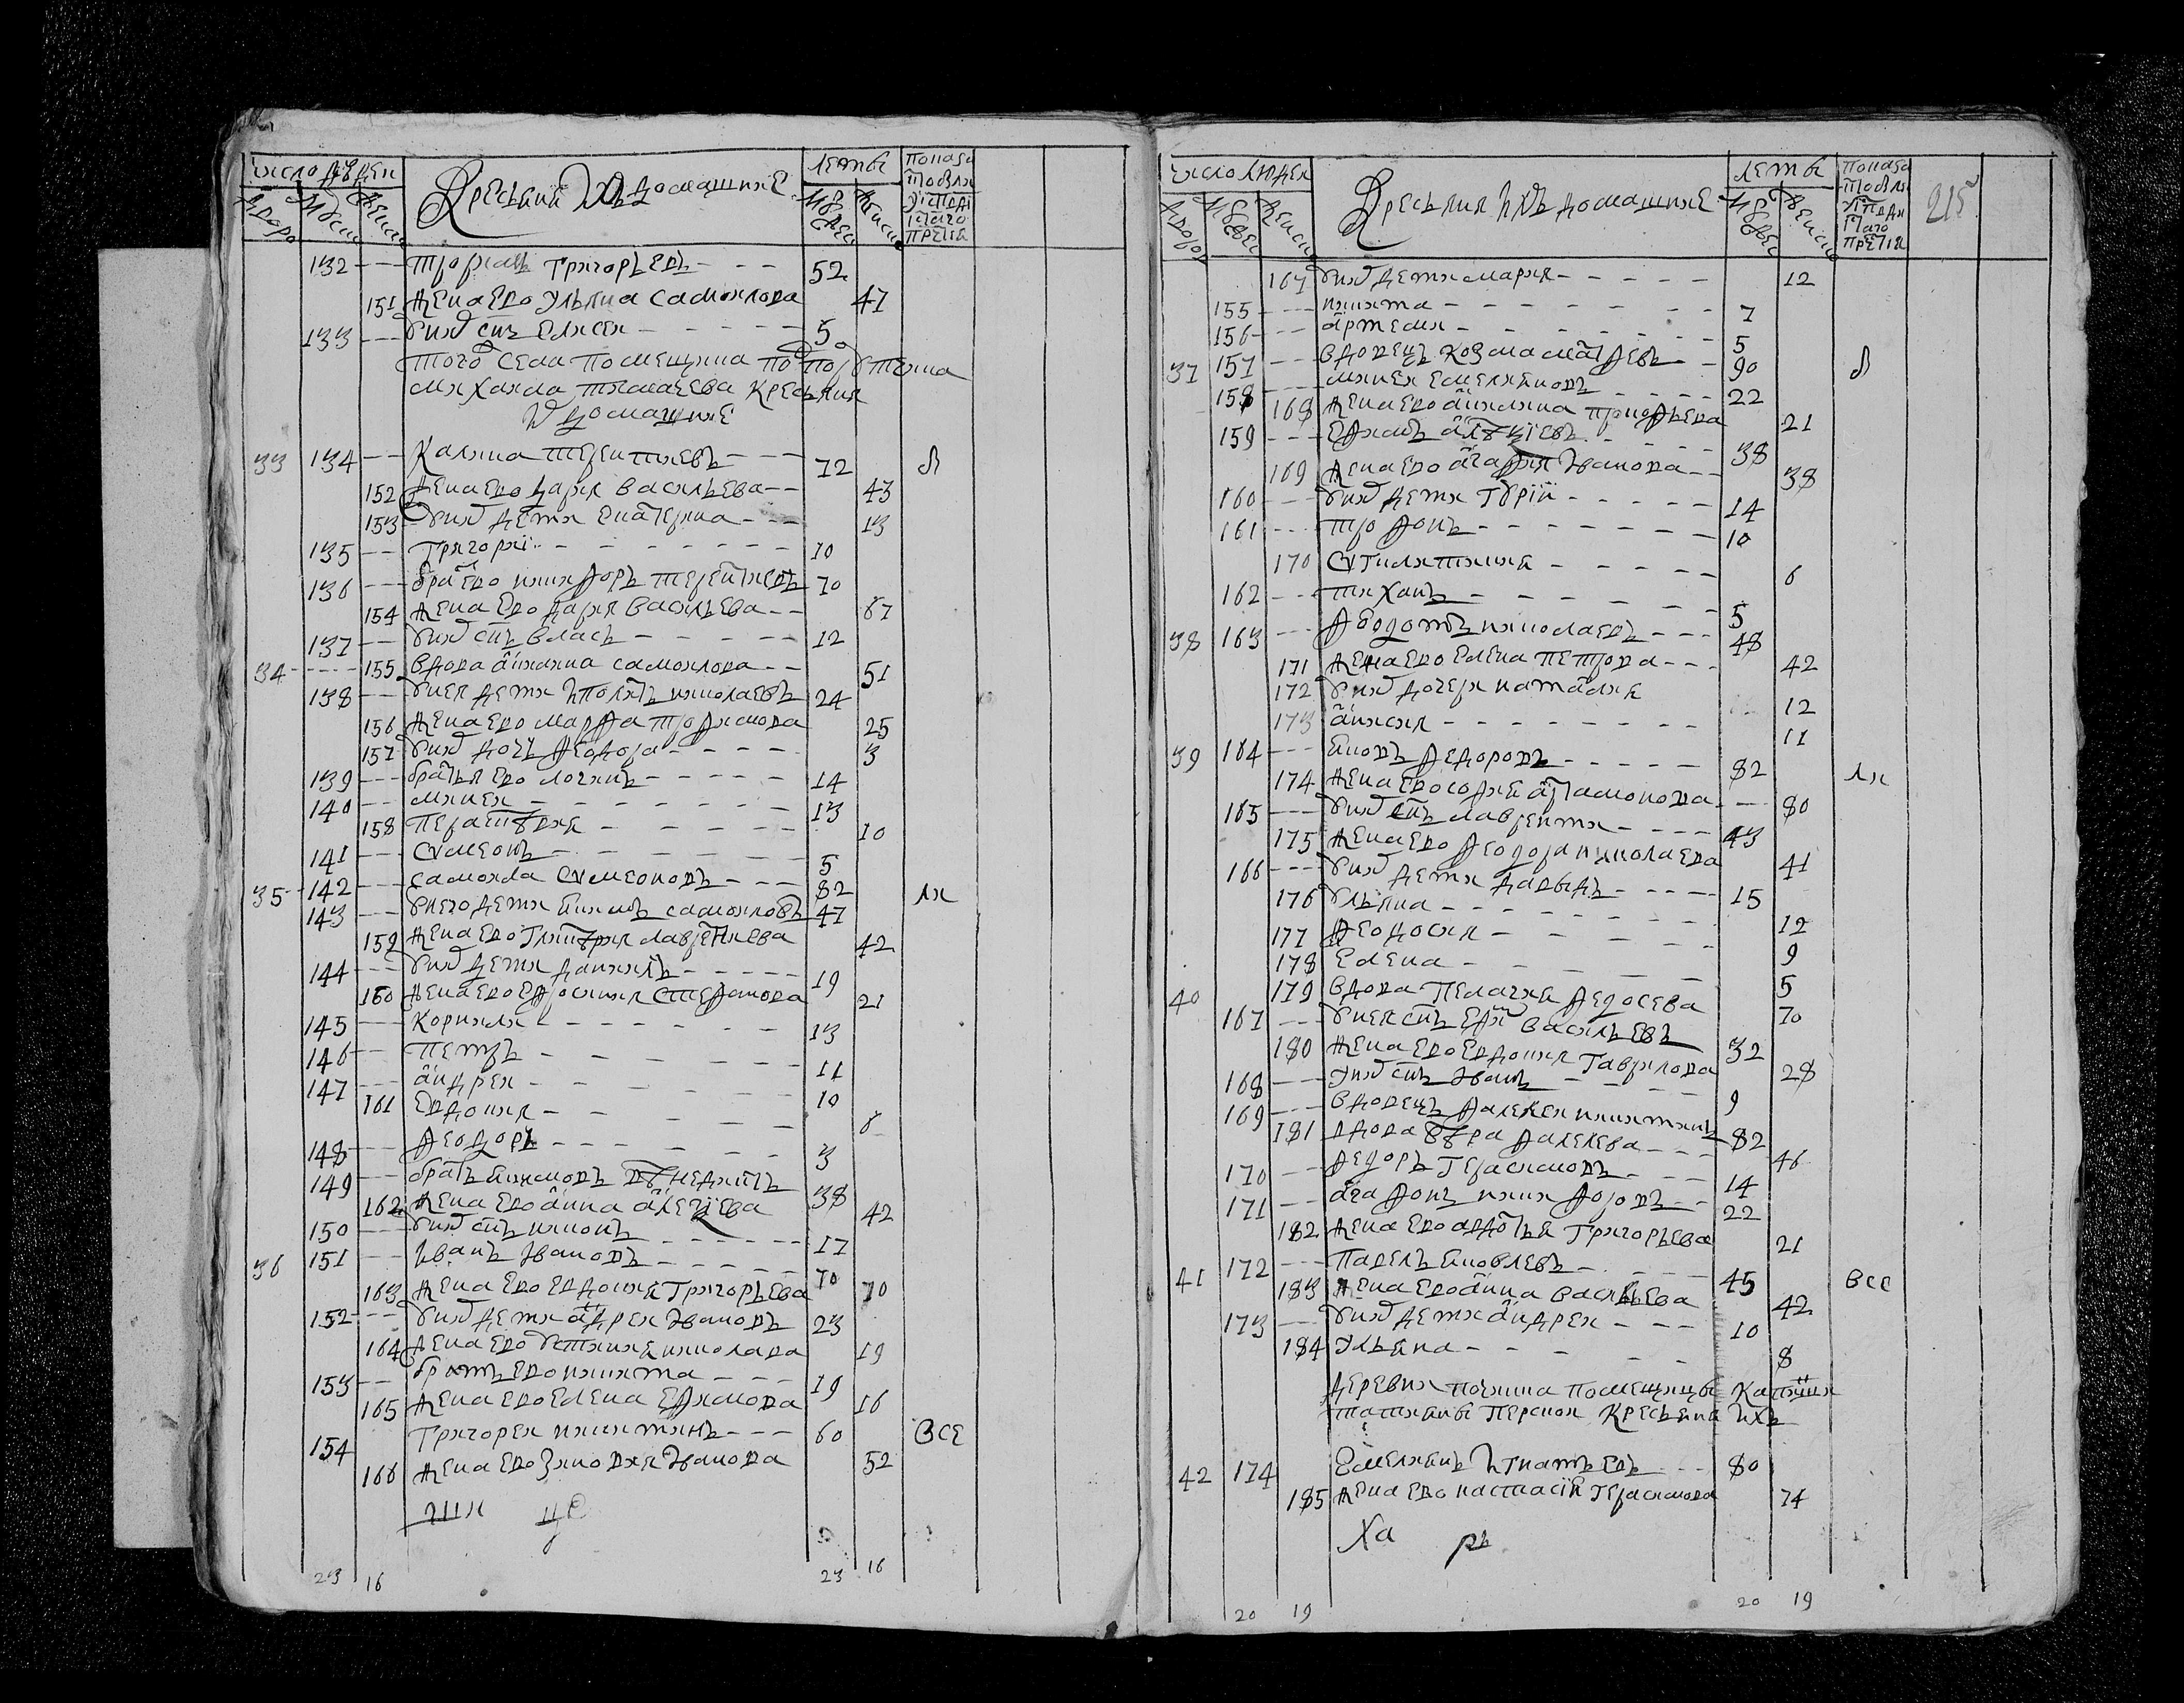 число людеи
Кресьяня ихъ домашние
леты
дворо
Мужес
женско
132 --- трофимъ григорьевъ --- 52
151 жена ево ульяна самоилова 47
133 --- у них снъ елисеи --- 5
того села помещика
михаила тимашева кресьяня
и домашние
33 134 --- Калина терентиевъ --- 72 л
152 жена ево дарья васильева --- 43
153 у них дети екатерина --- 13
135 --- григории --- 10
136 --- братъ ево никифоръ терентиевъ 70
154 жена ево дария васильева --- 67
137 --- у них снъ власъ --- 12
34 --- 155 вдова анисина самоилова --- 51
138 --- у нея дети иполитъ николаевъ 24
156 жена ево марфа трофимова 25
157 у них дочь феодора --- 3
139 --- братья ево логинъ --- 14
140 --- михеи --- 13
158 --- 10
141 --- сѵмеонъ --- 5
35 142 --- самоила сѵмеоновъ --- 82 ли
143 --- у него дети якимъ самоиловъ 47
159 жена ево гликерия лаврентиева 42
144 --- у них дети даниилъ --- 19
160 жена ево ефросиния стефанова 21
145 --- корнили --- 13
146 --- петръ --- 11
147 --- андреи --- 10
161 евдокия --- 6
148 --- феодоръ --- 3
149 --- братъ 38
162 жена ево анна алеѯиева 42
150 --- у них снъ никонъ --- 17
36 151 --- иванъ ивановъ --- 70
163 жена ево евдокия григорьева 70
152 --- у них дети андреи ивановъ 23
164 жена ево устиния николаева 19
153 --- братъ ево никита --- 19
165 жена ево елена ефимова 16
154 григореи никитинъ --- 60 все
166 жена ево зиновия иванова 52
23 16 23 16
число людеи
Кресьяня ихъ домашние
леты
215
дворо
Мужес
женско
167 у них дети мария --- 12
155 --- никита --- 7
156 --- артемеи --- 5
37 157 --- вдовецъ козма матфеевъ --- 90 л
158 --- михеи емелияновъ --- 22
168 жена ево акилина прокофьева 21
159 --- ефимъ алеѯиевъ --- 38
169 жена ево агафия иванова --- 38
160 --- у них дети гурии --- 14
161 --- трофонъ --- 10
170 --- 6
162 --- тиханъ --- 5
38 163 --- федотъ николаевъ --- 48
171 жена ево елена петрова --- 42
172 у них дочери наталия 12
173 анисия --- 11
39 164 --- яковъ федоровъ --- 82 ли
174 жена ево софия артамонова --- 80
165 --- у них снъ лаврентеи --- 43
175 жена ево феодора николаева 41
166 --- у них дети давыдъ --- 15
176 ульяна --- 12
177 феодосия --- 9
178 елена --- 5
40 179 вдова пелагия федосева 70
167 --- у нея снъ ефимъ васильевъ 32
180 жена ево евдокия гаврилова 28
168 --- у них снъ иванъ --- 9
169 --- вдовецъ фалелеи никитинъ 82
181 вдова фалелева --- 46
170 --- федоръ герасимовъ --- 14
171 --- агафонъ никифоровъ --- 22
182 жена ево авдотья григорьева 21
41 172 --- павелъ яковлевъ --- 45 все
183 жена ево анна васильева 42
173 --- у них дети андреи --- 10
184 ульяна --- 8
деревни починка помещицы
татияны Кресьяня ихъ
42 174 емелиянъ игнатьевъ --- 80
185 жена ево настасия герасимова 74
ха рп
20 19 20 19